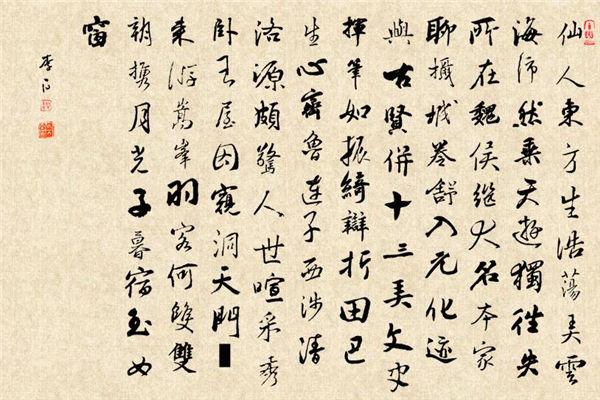 仙人東方生浩蕩弄雲
海沛然乘天遊獨往失
所在魏侯繼大名本家
聊攝城卷舒入元化迹
與古賢併十三弄文史
揮筆如振綺辯折田巴
生心齊魯連子西涉清
洛源頗驚人世喧采秀
卧王屋因窺洞天門
來游嵩峯羽客何雙雙
朝攜月光子暮宿玉女
窗
李白